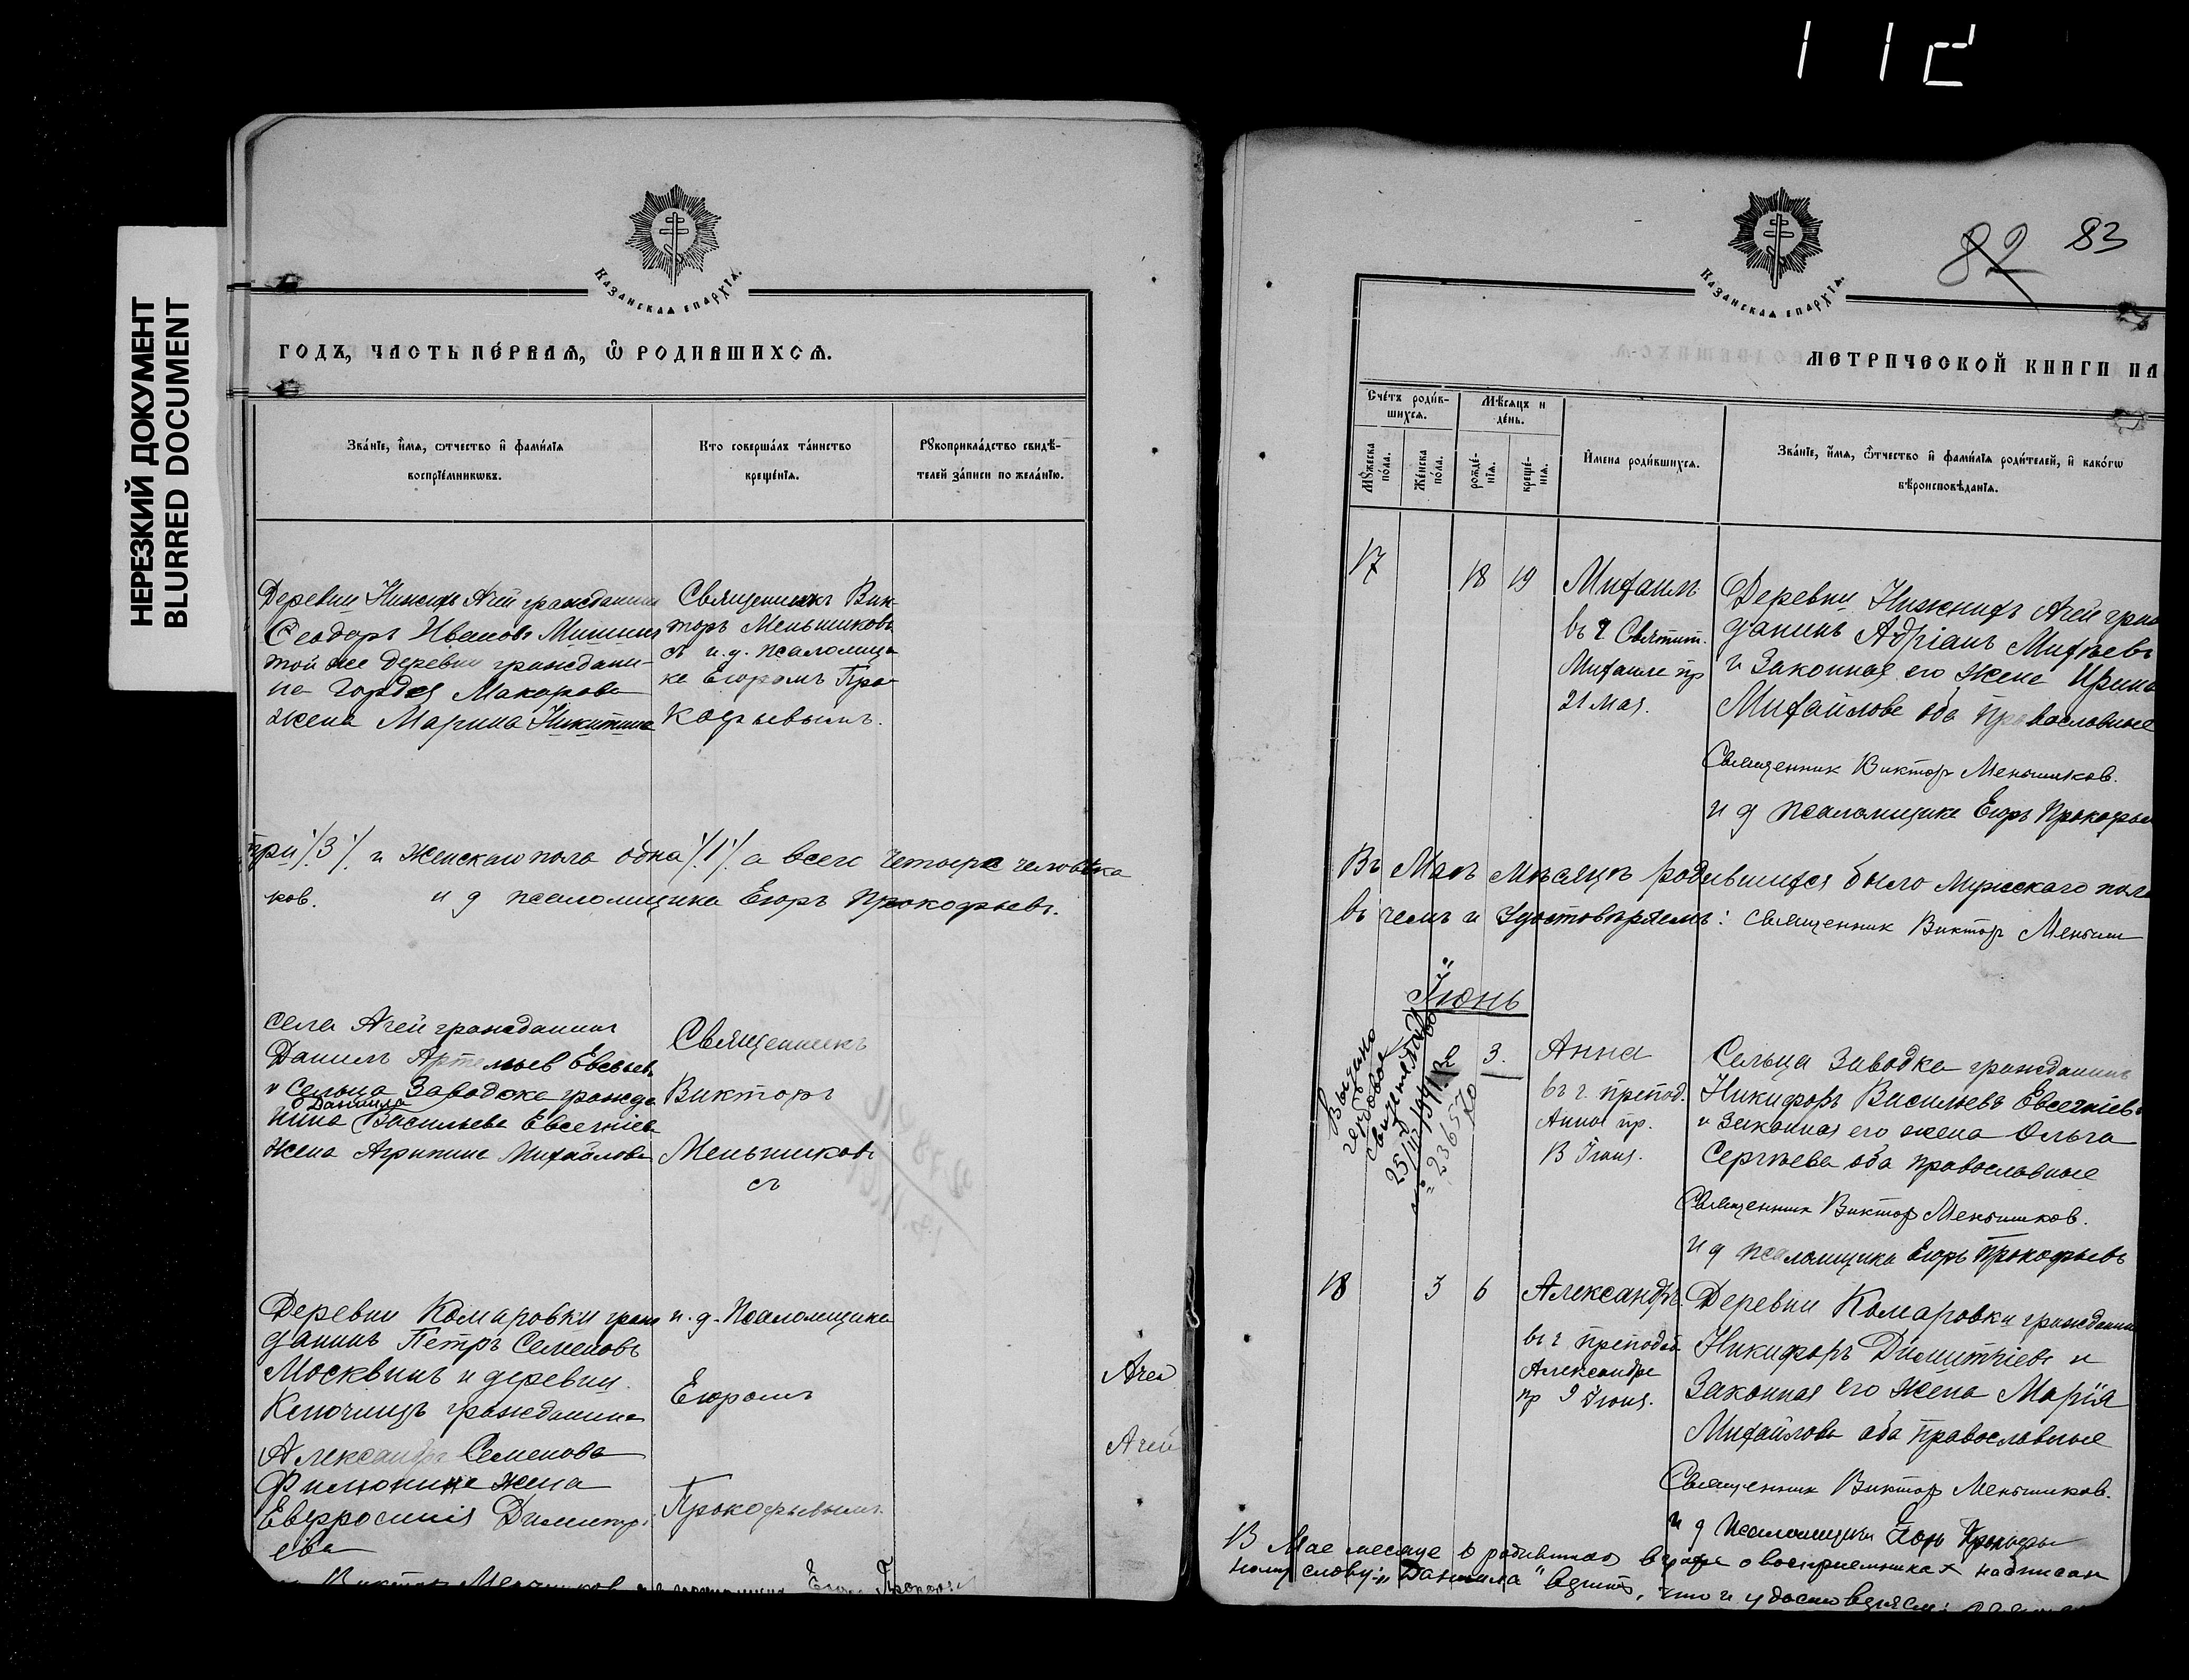 НЕРЕЗКИЙ ДОКУМЕНТ
BLURRED DOCUMENT
Казанская епархїѧ.
ГОДЪ, ЧАСТЬ ПЕ́РВАѦ, Ѿ РОДИВШИХСѦ.
Зва́нїе, и҆́мѧ, ѻтчество и҆ фами́лїѧ
воспрїе́мникѡвъ.
Кто соверша́лъ та́инство
креще́нїѧ.
Рꙋкоприкла́дство свидѣ́-
телей за́писи по жела́нїю.
Деревни Нижнихъ Ачей гражданинъ
Ѳеодоръ Ивановъ Мишинъ
той же деревни граждани-
на Гордея Макарова
жена Марина Никитина
Священникъ Вик-
торъ Меньшиковъ
съ и. д. псаломщи
ка Егоромъ Про-
кофьевымъ.
три /3/ и женскаго пола одна /1/ а всего четыре человѣка
ков. и д псаломщика Егоръ Прокофьевъ.
Села Ачей гражданинъ
Данилъ Артемьев Евсѣев
и Сельца Заводска гражда
Даниила
нина Васильева Евсегнѣев
жена Агрипина Михайлова
Священникъ
Викторъ
Меньшиковъ
съ
Деревни Комаровки граж
данинъ Петръ Семеновъ
Москвинъ и деревни
Ключищъ гражданина
Александра Семенова
Филюнина жена
Евфросинiя Димитрi
ева
и. д. Псаломщика
Егоромъ
Прокофьевымъ.
Ачей
Ачей
Викторъ Меньшиков
112
82 83
Казанская епархїѧ.
МЕТРИЧЕСКОЙ КНИГИ НА
Сче́тъ роди́в-
шихсѧ.
Мѣ́сѧцъ и
де́нь.
Мꙋжеска
по́ла.
Же́нска
по́ла.
рожде́-
нїѧ.
креще́-
нїѧ.
И҆мена роди́вшихсѧ.
Зва́нїе, и҆́мѧ, ѻ҆́тчество и҆ фами́лїѧ роди́телей, и҆ како́гѡ
вѣроисповѣ́данїѧ.
17 18 19
Михаилъ
въ ч Святит.
Михаила пр
21 Мая.
Деревни Нижнихъ Ачей граж
данинъ Адрiанъ Михѣевъ
и законная его жена Ирина
Михайлова оба православные
Священник Виктор Меньшиков.
и д псаломщика Егоръ Прокофьев
Въ Маѣ мѣсяцѣ родившихся было мужскаго пола
въ чемъ и удостовѣряемъ: священник Виктор Меньши
Iюнь
Выдано
гербовое
свидетельство
25/III/1917
№ 23657
3.
Анна
въ ч. препод.
Анны пр.
13 Iюня.
Сельца Заводка гражданинъ
Никифоръ Васильевъ Евсегнѣев
и законная его жена Ольга
Сергѣева оба православные
Священник Виктор Меньшиков.
и д псаломщика Егоръ Прокофьевъ
18 3 6
Александръ.
въ ч преподоб
Александра
пр 9 Iюня.
Деревни Комаровки гражданинъ
Никифоръ Димитрiевъ и
законная его жена Марiя
Михайлова оба православные
Священник Виктор Меньшиков.
и д псаломщика Егоръ Прокофье
В Мае месяце о родившихся в графе о восприемниках надписан
ному слову: „Даниила“ верить, что и удостоверяем: